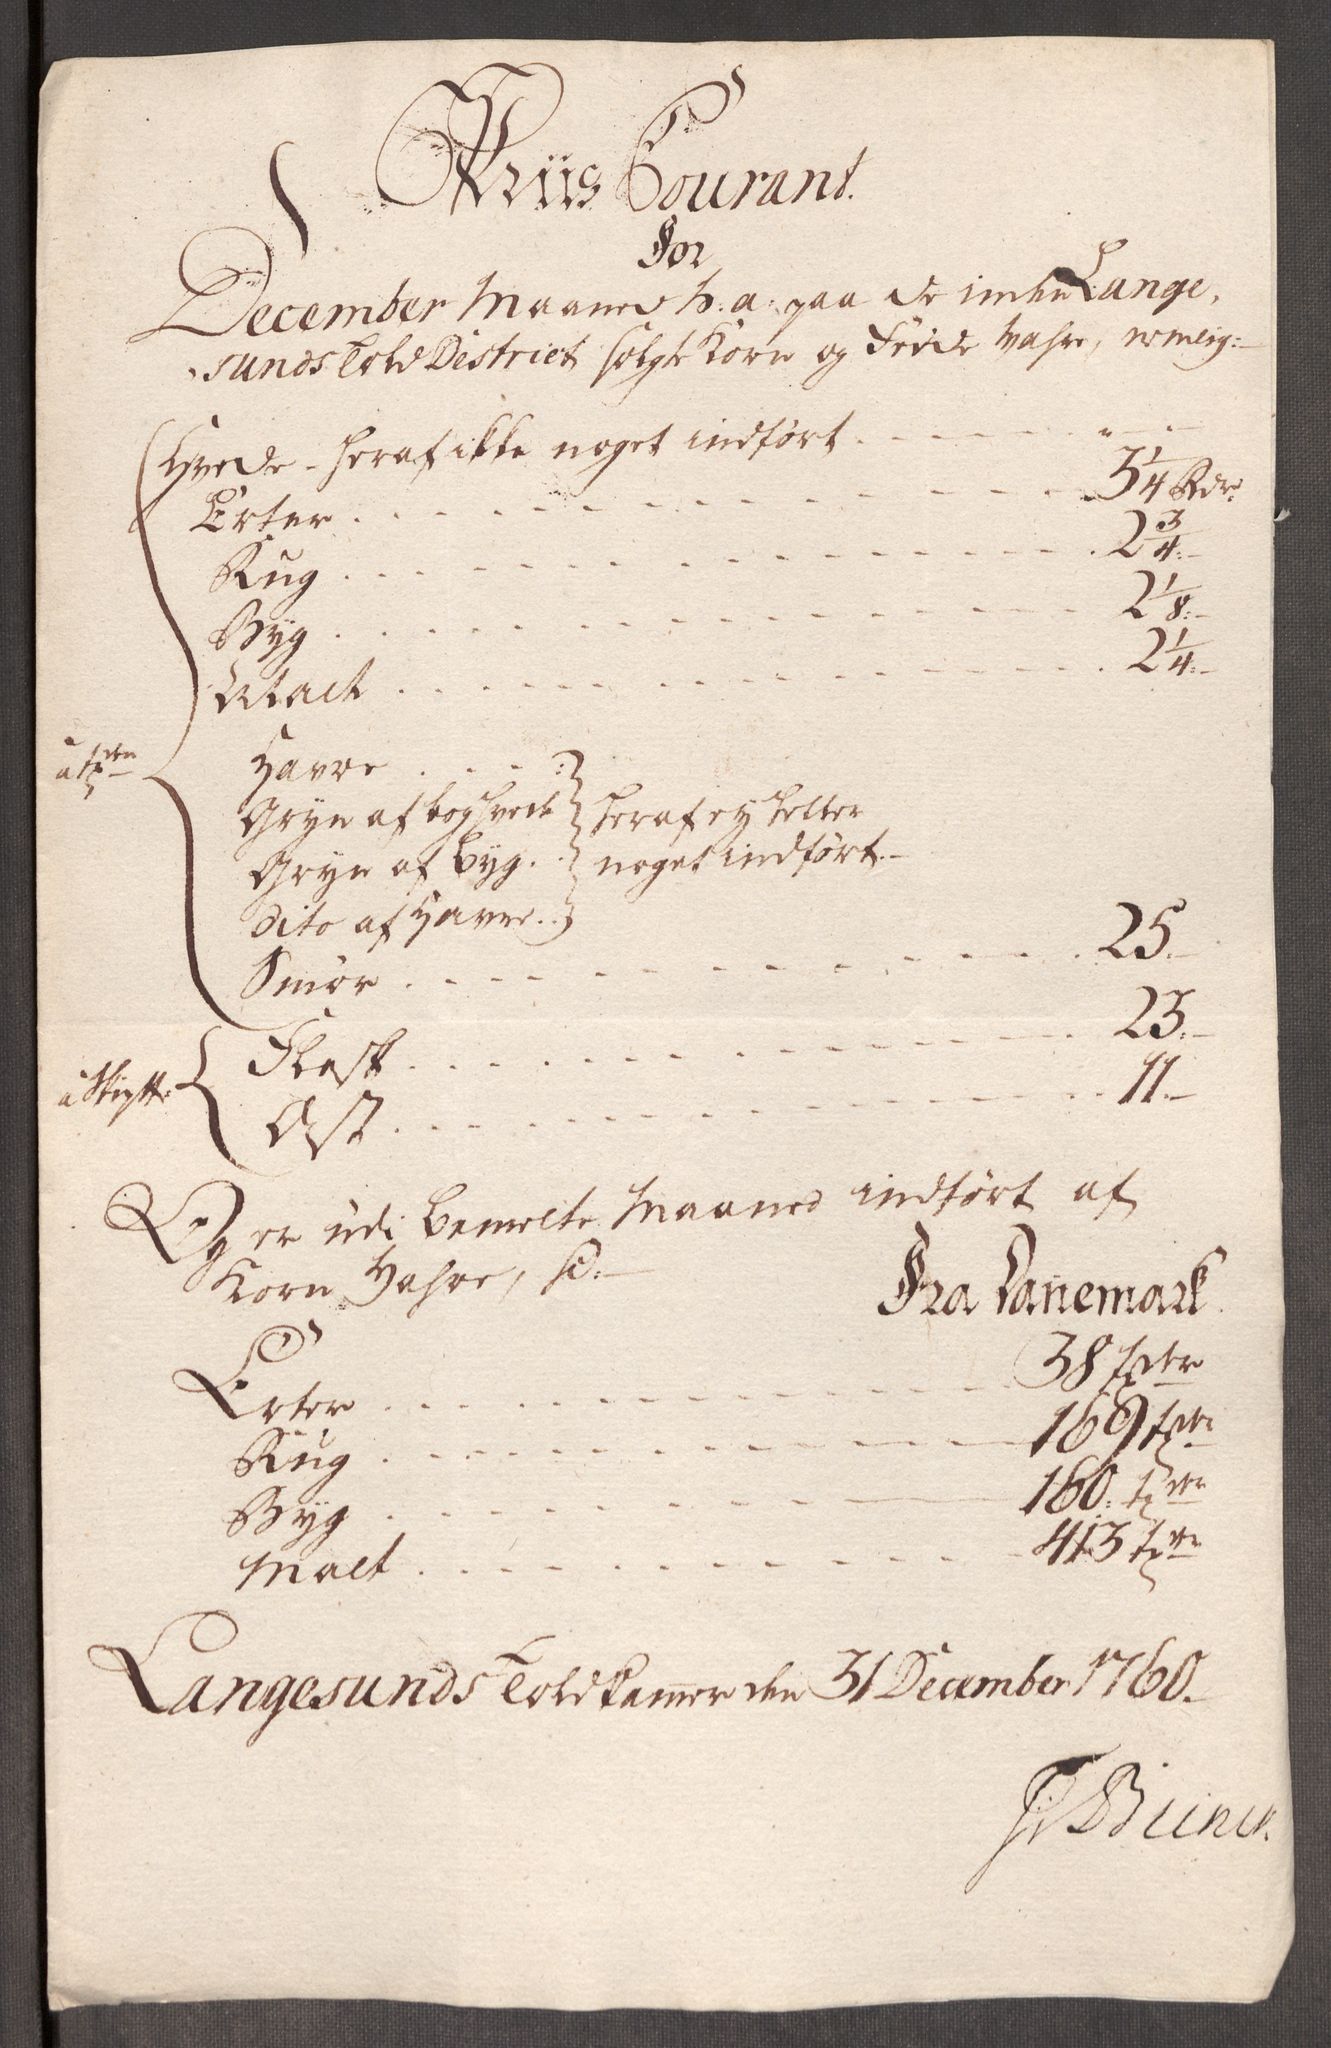 Priis Courant
For
December Maaned h: a: paa de inden Lange,
sunds Told District solgte Korn og Föede Vahre, nemlig:
Hvede - heraf ikke noget indført . . . . . . "
Erter . . . . . . 3 1/4 Rdr:
Rug . . . . . . 2 3/4:
Byg . . . . . . 2 1/8:
Malt . . . . . . 2 1/4:
a tønden
Havre . . . .
Gryn af boghvede } heraf ey heller
Gryn af Byg . . } noget indført.
Dito af Havre . .
Smör . . . . . . 25.
a Skip℔:
Flesk . . . . . . 23.
Ost . . . . . . 11.
Og er udi bemelte Maaned indført af
Korn Vahre, sc:
Fra Danemark.
Erter . . . . . . 38 tønder
Rug . . . . . . 169 tønder
Byg . . . . . . 160: tønder
Malt . . . . . . 413 tønder
Langesunds Toldkamer den 31 December 1760.